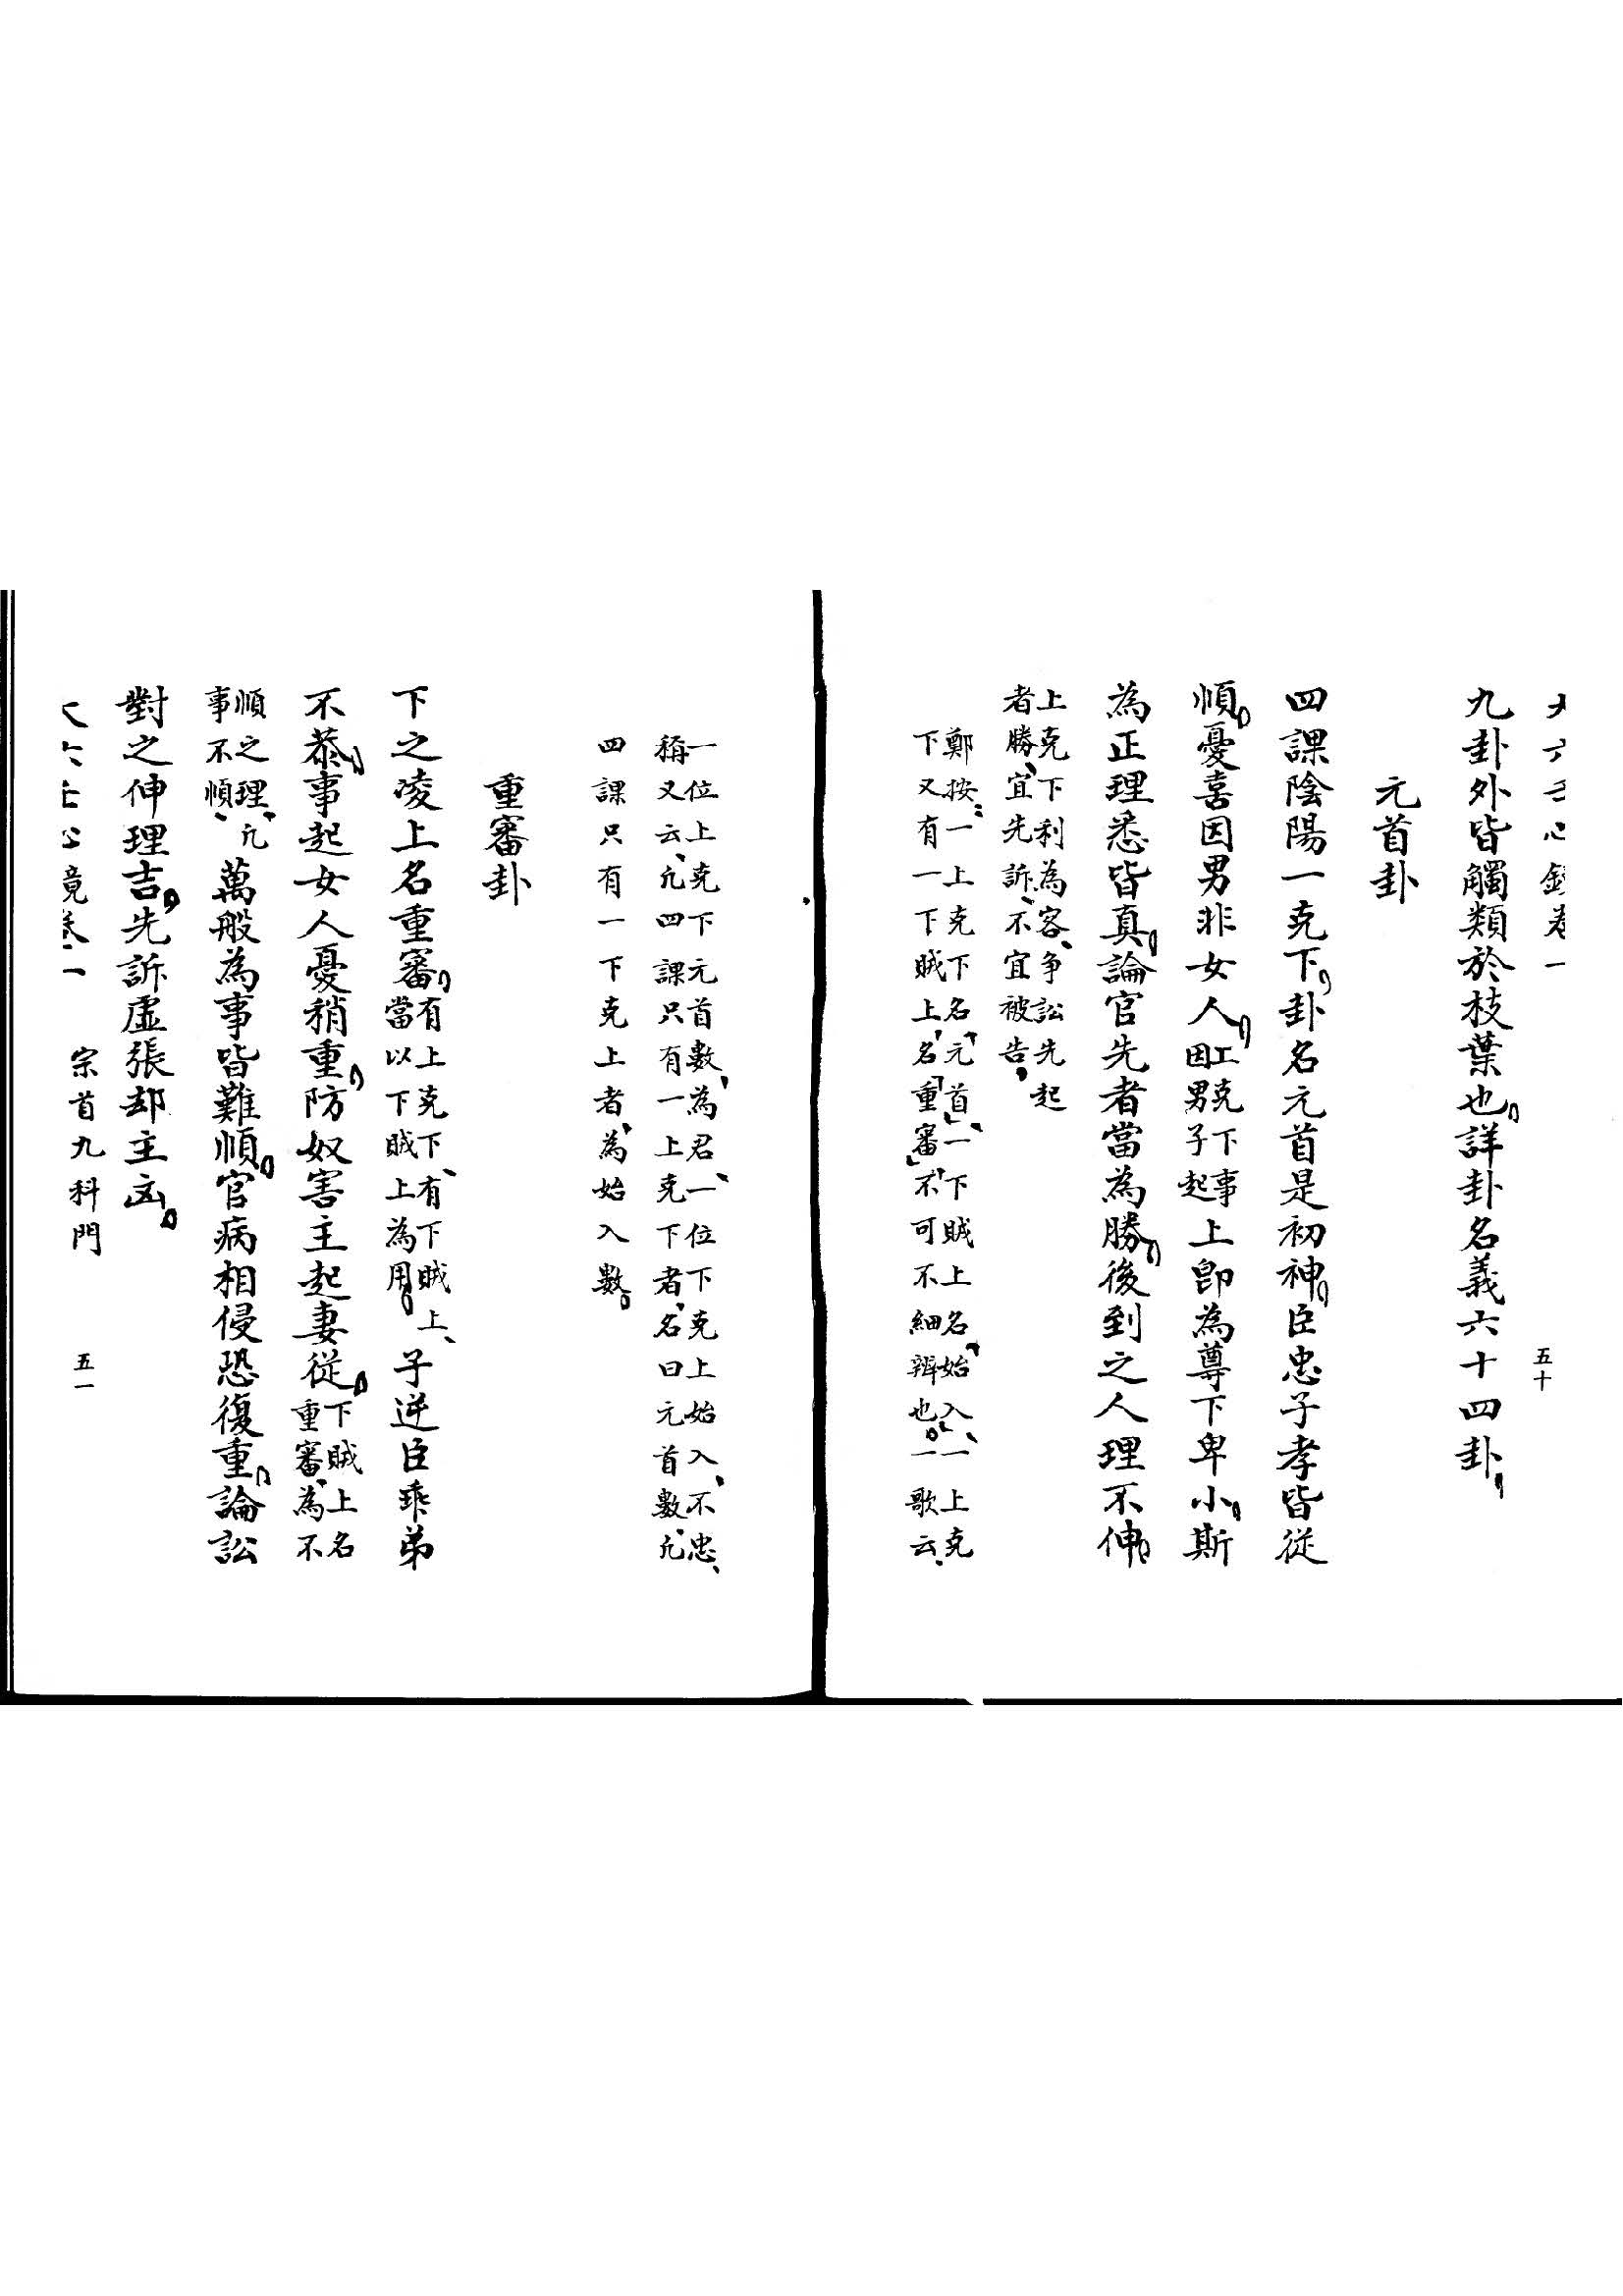 大六壬心鏡卷一 五十
九卦外皆觸類於枝葉也。詳卦名義六十四卦。
元首卦
四課陰陽一克下，卦名元首是初神。臣忠子孝皆從
順。憂喜因男非女人。工克下事因男子起上卽為尊下卑小。斯
為正理悉皆真。論官先者當為勝。後到之人理不伸。
上克下利為客、争訟先起
者勝、宜先訴、不宜被告。
鄭按：一上克下名「元首」、一下賊上名「始入」、一上克
下又有一下賊上、名「重審」、不可不細辨也。一歌云、
一位上克下元首數、為君、一位下克上始入、不忠、
稱又云、凢四課只有一上克下者、名曰元首數、凢
四課只有一下克上者、為始入數。
重審卦
下之凌上名重審。有上克下、有下賊上、當以下賊上為用。子逆臣乖弟
不恭。事起女人憂稍重。防奴害主起妻從。下賊上名重審、為不
順之理、凢事不順、萬般為事皆難順。官病相侵恐復重。論訟
對之伸理吉。先訴虛張却主凶。
大六壬心鏡卷一 宗首九科門 五一